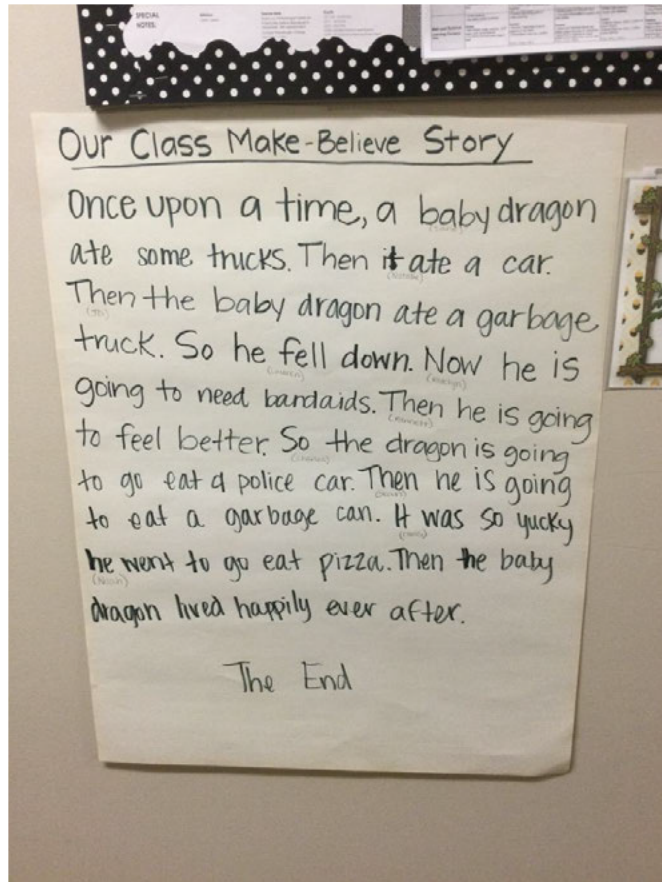 SPECIAL
NOTES:
Our Class Make-Believe Story
Once upon a time, a baby dragon
ate some trucks. Then it ate a car.
Then the baby dragon ate a garbage
truck. So he fell down. Now he is
going to need bandaids. Then he is going
to feel better. So the dragon is going
to go eat a police car. Then he is going
to eat a garbage can. It was so yucky
he went to go eat pizza. Then the baby
(Noah)
dragon lived happily ever after.
The End